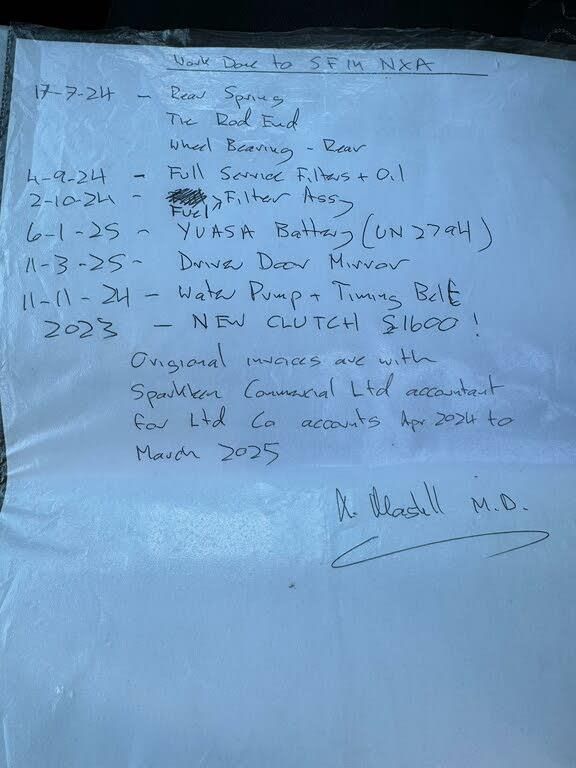 Work Done to SF14 NXA
17-7-24 - Rear Spring
Tie Rod End
Wheel Bearing - Rear
4-9-24 - Full Service Filters + Oil
2-10-24 - Fuel Filter Assy
6-1-25 - YUASA Battery (UN2794)
11-3-25 - Driver Door Mirror
11-11-24 - Water Pump + Timing Belt
2023 - NEW CLUTCH £1600!
Origional invoices are with
Commercial Ltd accountant
for Ltd Co accounts Apr 2024 to
March 2025
M.D.